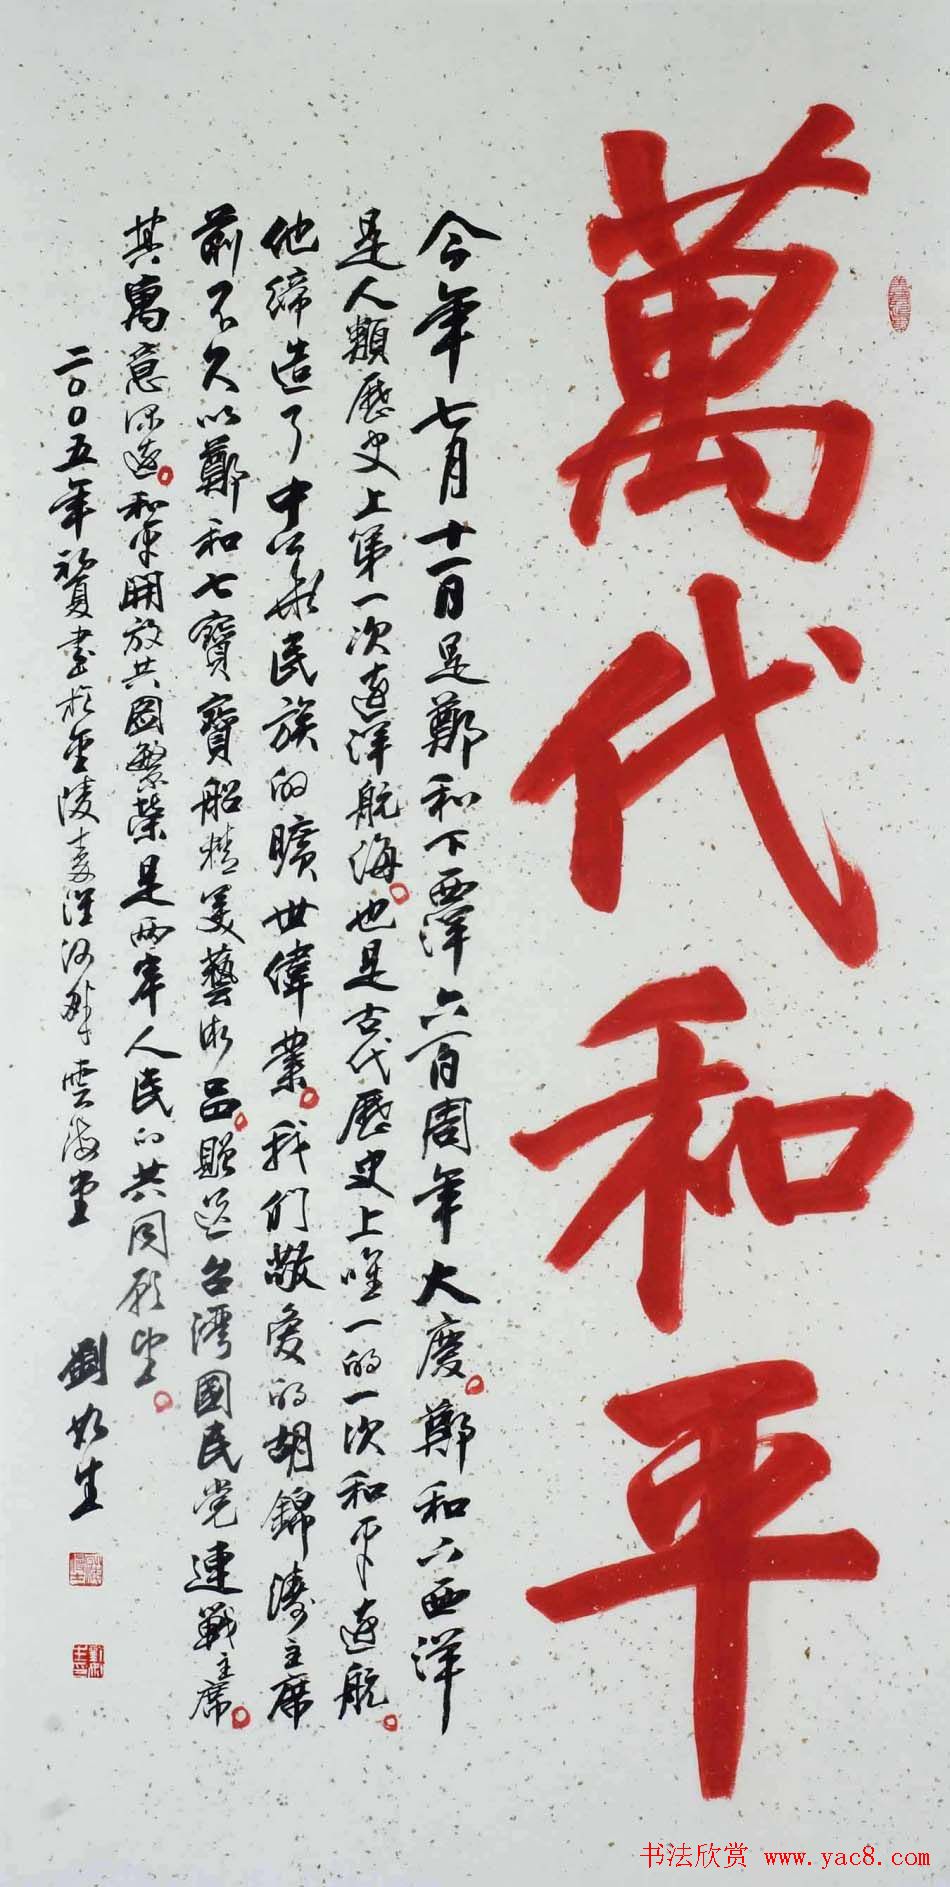 萬代和平
今年七月十一日是鄭和下西洋六百周年大慶。鄭和下西洋
是人類歷史上第一次遠洋航海。也是古代歷史上唯一的一次和平遠航。
他締造了中華民族的曠世偉業。我们敬爱的胡錦濤主席
前不久以鄭和七寶寶船精美藝術品。贈送台湾國民党連戰主席。
其寓意深遠。和平開放共圖繁榮是两岸人民的共同願望。
二〇〇五年初夏書於金陵秦淮河畔雲海堂 劉如生
书法欣赏 www.yac8.com